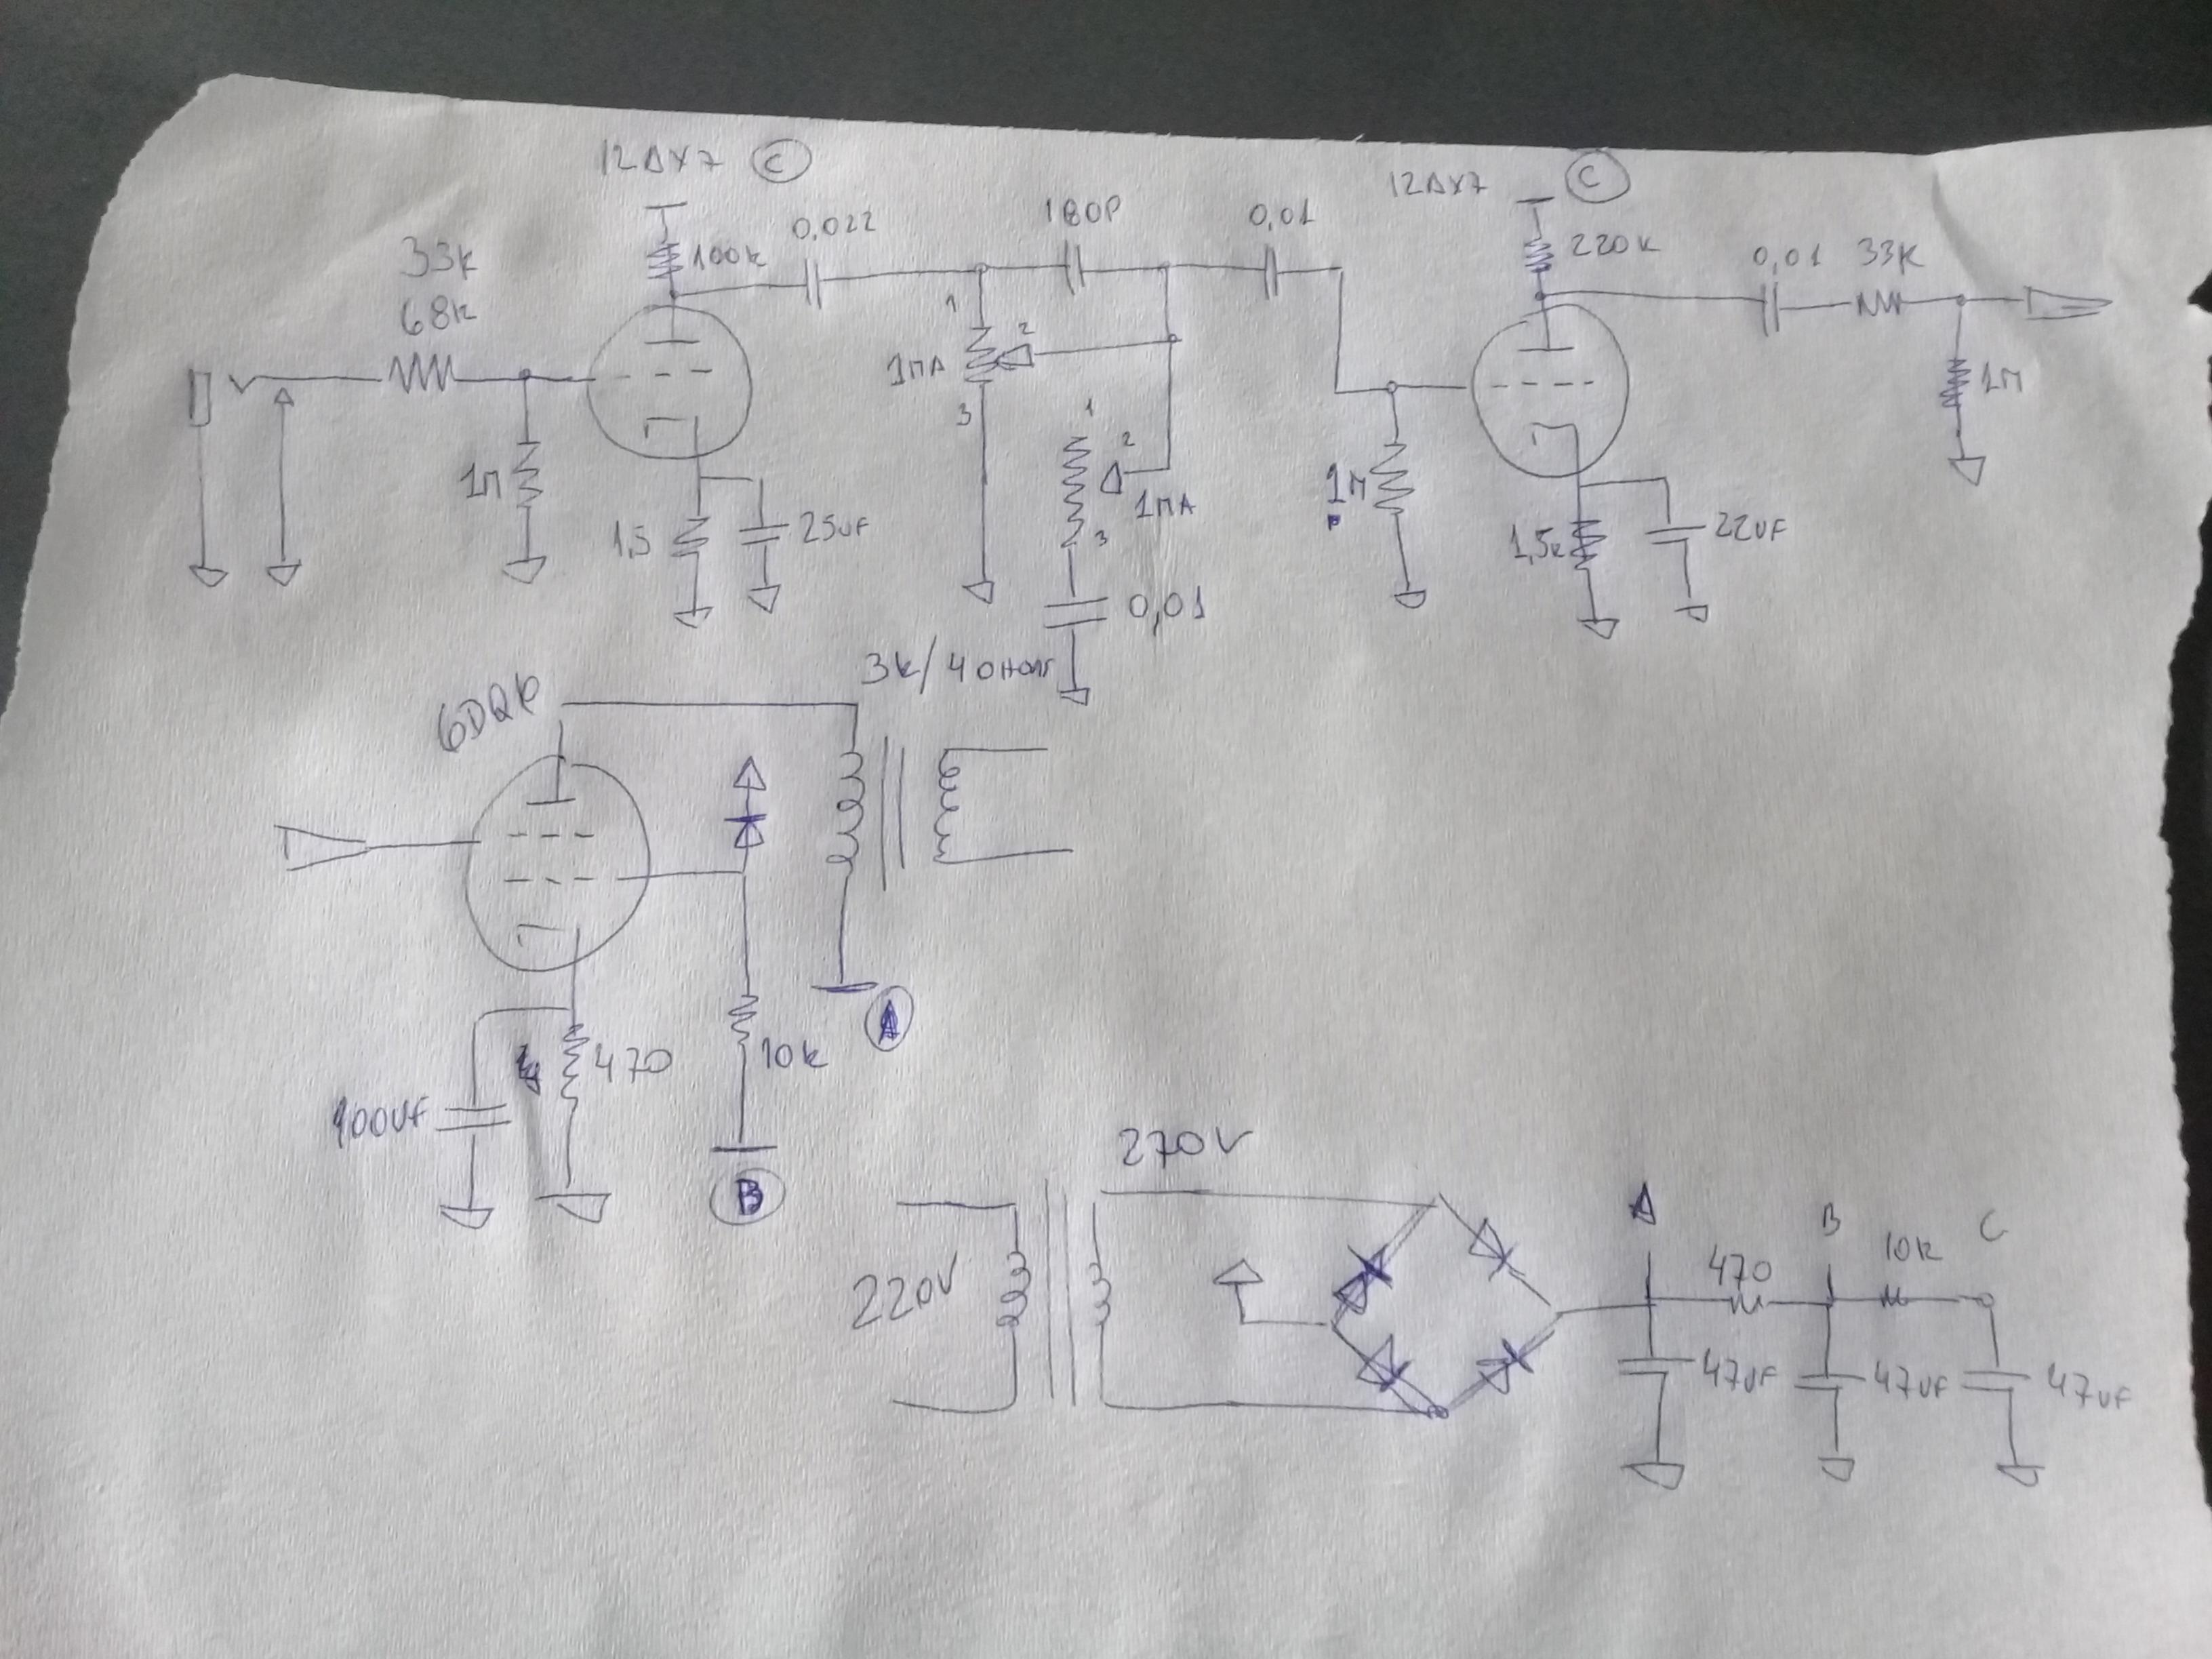 12AX7 C
33k
68k
100k
0,022
180P
0,01
12AX7 C
220k
0,01 33k
1M
1,5
25uF
1MA
1
2
3
1
2
3
1MA
0,01
1M
1,5k
22uF
1M
3k/4 OHMS
470
100uF
10k
A
B
220V
270V
A
470
B
10k
C
47uF
47uF
47uF